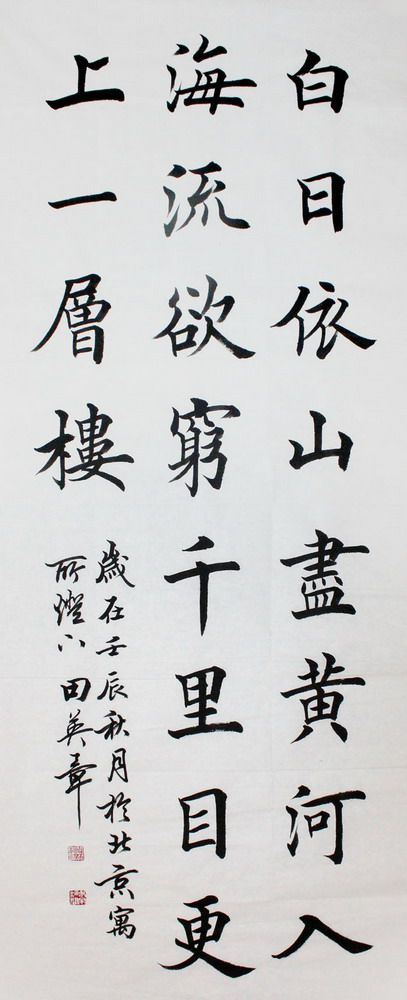 白日依山盡黄河入
海流欲窮千里目更
上一層樓
歲在壬辰秋月於北京寓
所燈下田英章